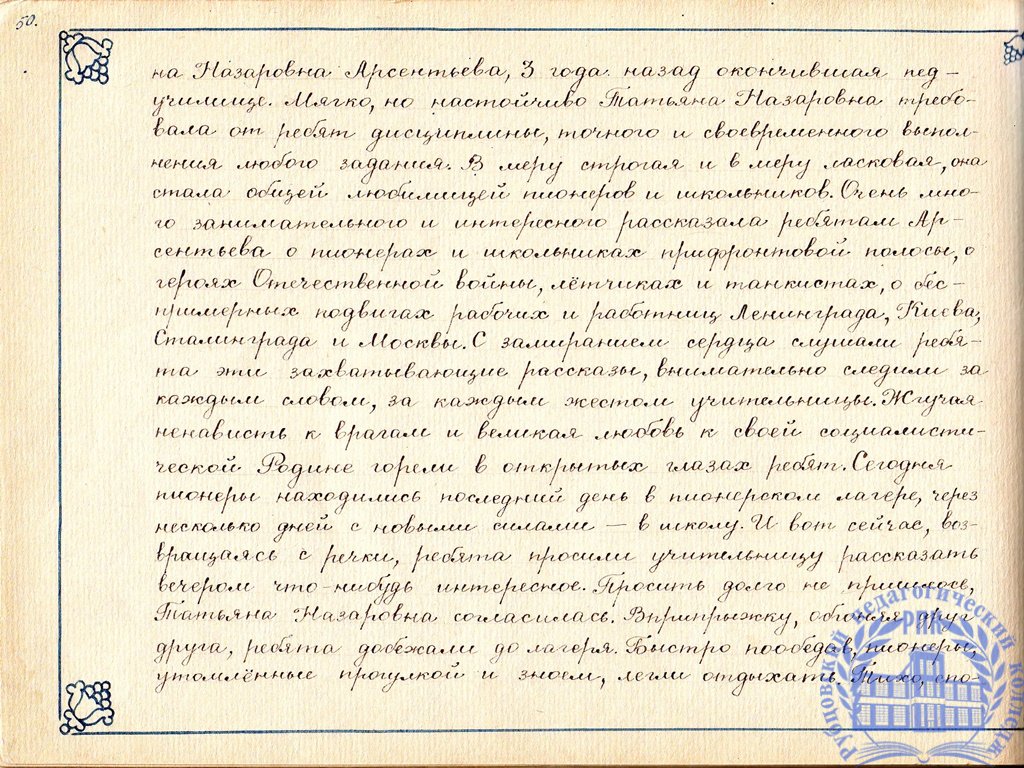 50.
на Назаровна Арсентьева, 3 года назад окончившая пед-
училище. Мягко, но настойчиво Татьяна Назаровна требо-
вала от ребят дисциплины, точного и своевременного выпол-
нения любого задания. В меру строгая и в меру ласковая, она
стала общей любимицей пионеров и школьников. Очень мно-
го занимательного и интересного рассказала ребятам Ар-
сентьева о пионерах и школьниках прифронтовой полосы, о
героях Отечественной войны, лётчиках и танкистах, о бес-
примерных подвигах рабочих и работниц Ленинграда, Киева,
Сталинграда и Москвы. С замиранием сердца слушали ребя-
та эти захватывающие рассказы, внимательно следили за
каждым словом, за каждым жестом учительницы. Жгучая
ненависть к врагам и великая любовь к своей социалисти-
ческой Родине горели в открытых глазах ребят. Сегодня
пионеры находились последний день в пионерском лагере, через
несколько дней с новыми силами — в школу. И вот сейчас, воз-
вращаясь с речки, ребята просили учительницу рассказать
вечером что-нибудь интересное. Просить долго не пришлось,
Татьяна Назаровна согласилась. Вприпрыжку, обгоняя друг
друга, ребята добежали до лагеря. Быстро пообедав, пионеры,
утомлённые прогулкой и зноем, легли отдыхать. Тихо, спо-
Рубцовский педагогический колледж
РПК